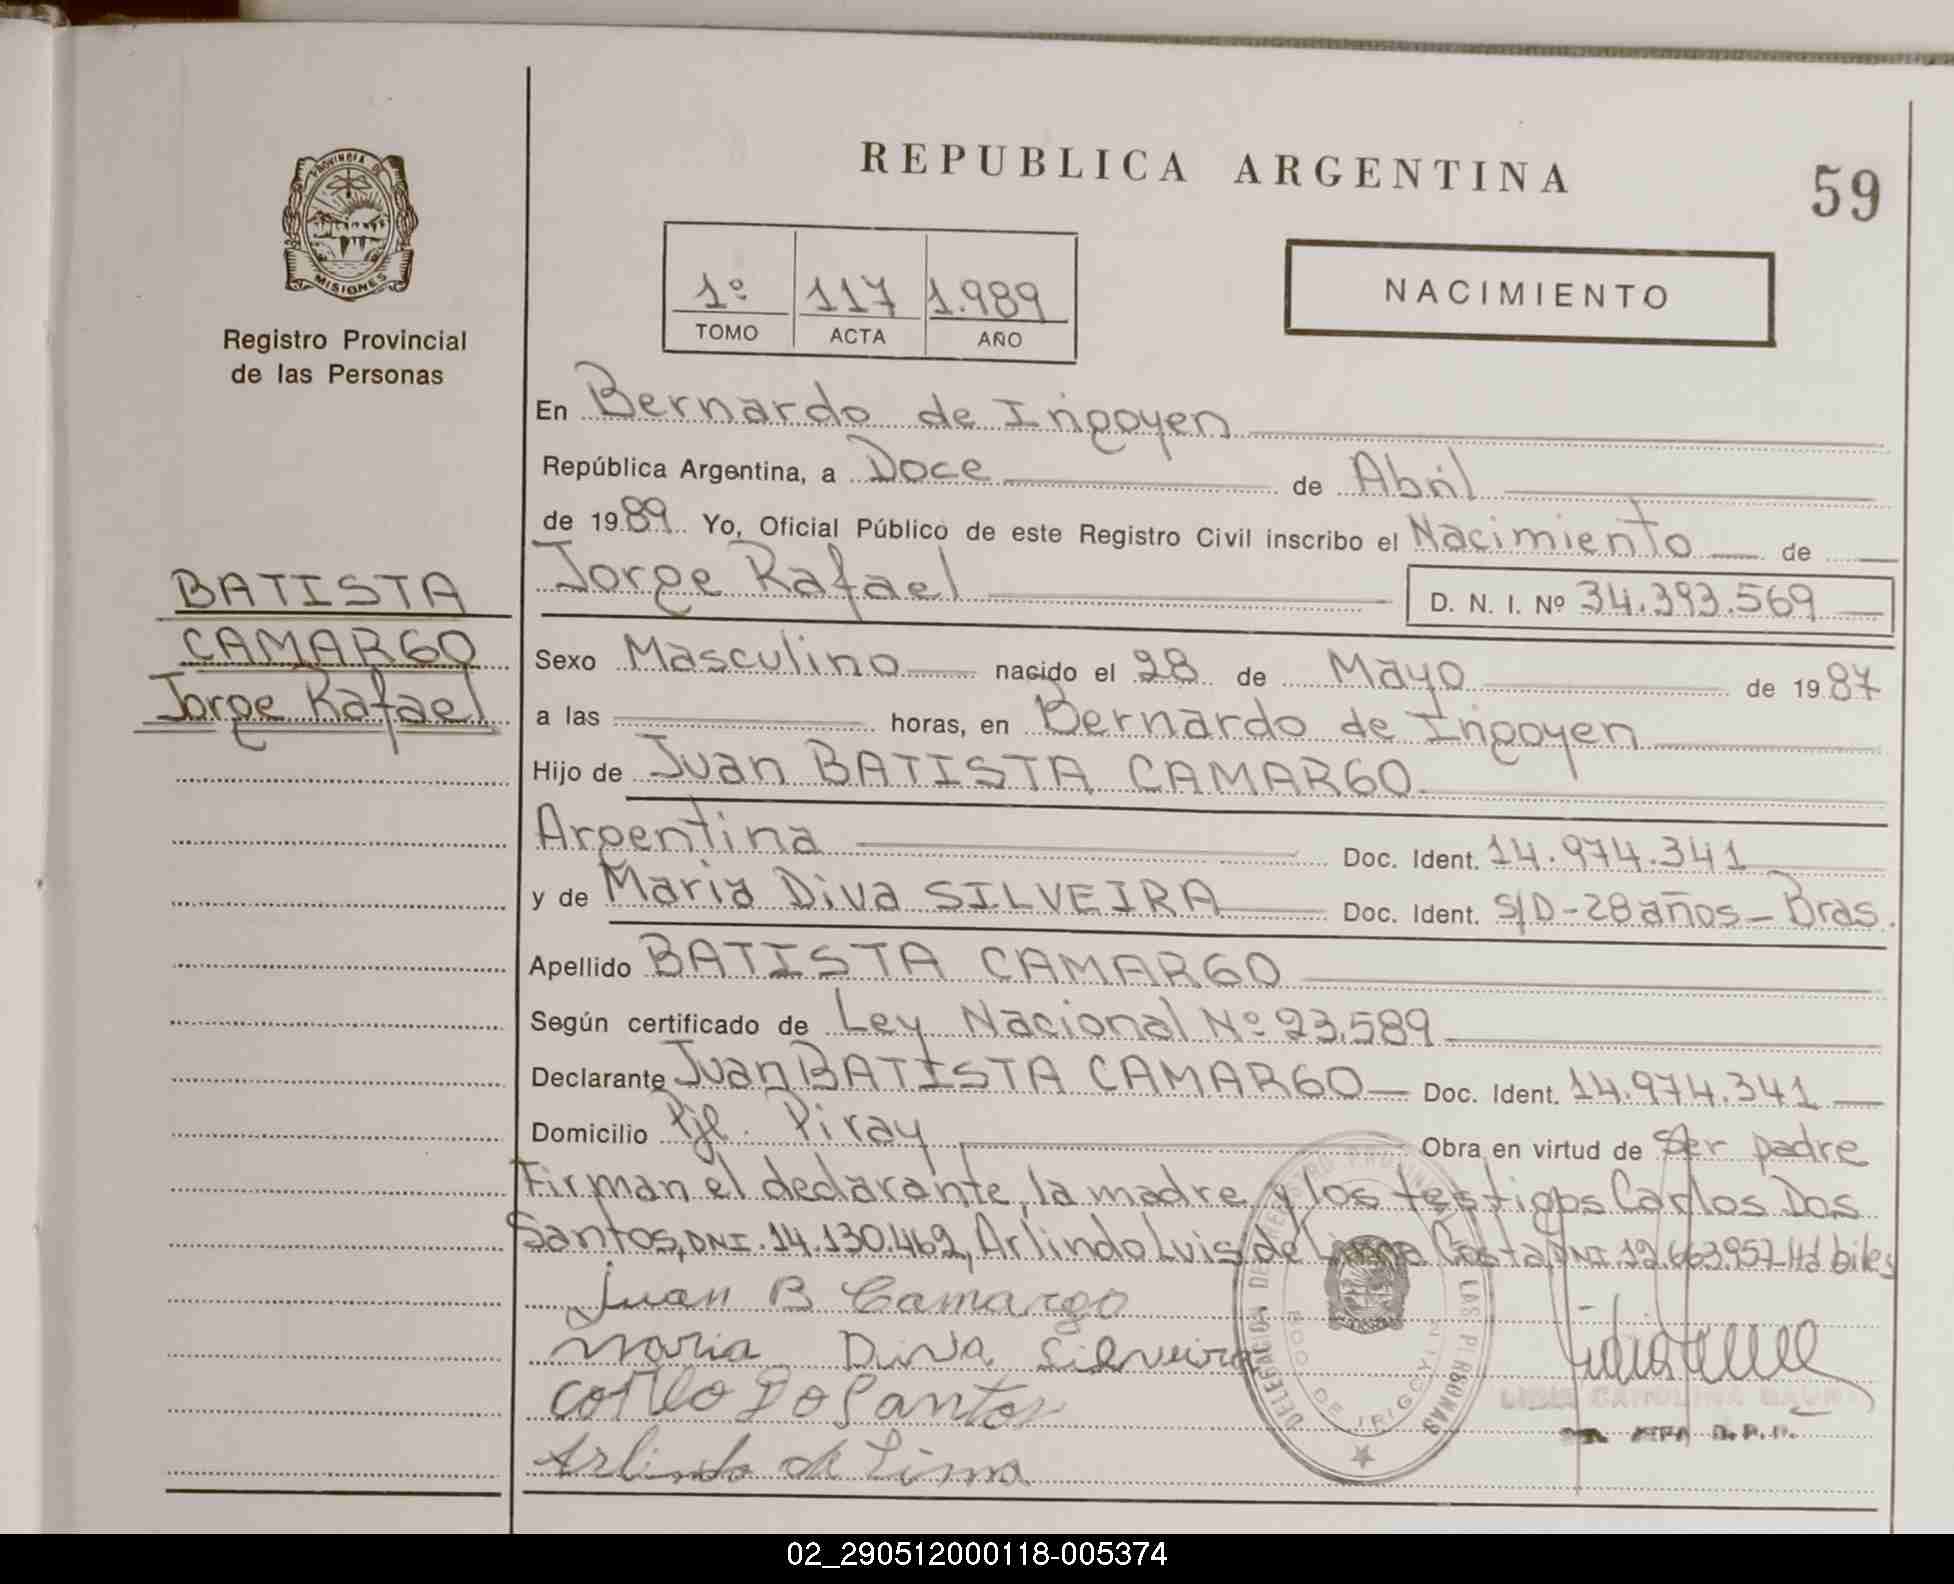 REPUBLICA ARGENTINA
59
PROVINCIA DE
MISIONES
Registro Provincial
de las Personas
1º 117 1.989
TOMO ACTA AÑO
NACIMIENTO
En Bernardo de Irigoyen
República Argentina, a Doce de Abril
de 1989 Yo, Oficial Público de este Registro Civil inscribo el Nacimiento de
Jorge Rafael D. N. I. Nº 34.393.569
BATISTA
CAMARGO
Jorge Rafael
Sexo Masculino nacido el 28 de Mayo de 1987
a las horas, en Bernardo de Irigoyen
Hijo de Juan BATISTA CAMARGO
Argentina Doc. Ident. 14.974.341
y de Maria Diva SILVEIRA Doc. Ident. S/D-28 años-Bras.
Apellido BATISTA CAMARGO
Según certificado de Ley Nacional Nº 23.589
Declarante Juan BATISTA CAMARGO Doc. Ident. 14.974.341
Domicilio Pje. Piray Obra en virtud de Ser padre
Firman el declarante, la madre y los testigos Carlos Dos
Santos, DNI. 14.130.462, Arlindo Luis de Lima Costa, DNI. 12.663.957-Hábiles
Juan B Camargo
Maria Diva Silveira
Do Santos
Arlindo de Lima
DELEGACION DEL REGISTRO PROVINCIAL DE LAS PERSONAS
BDO. DE IRIGOYEN
LIDIA CAROLINA
JEFA R.P.P.
02_290512000118-005374